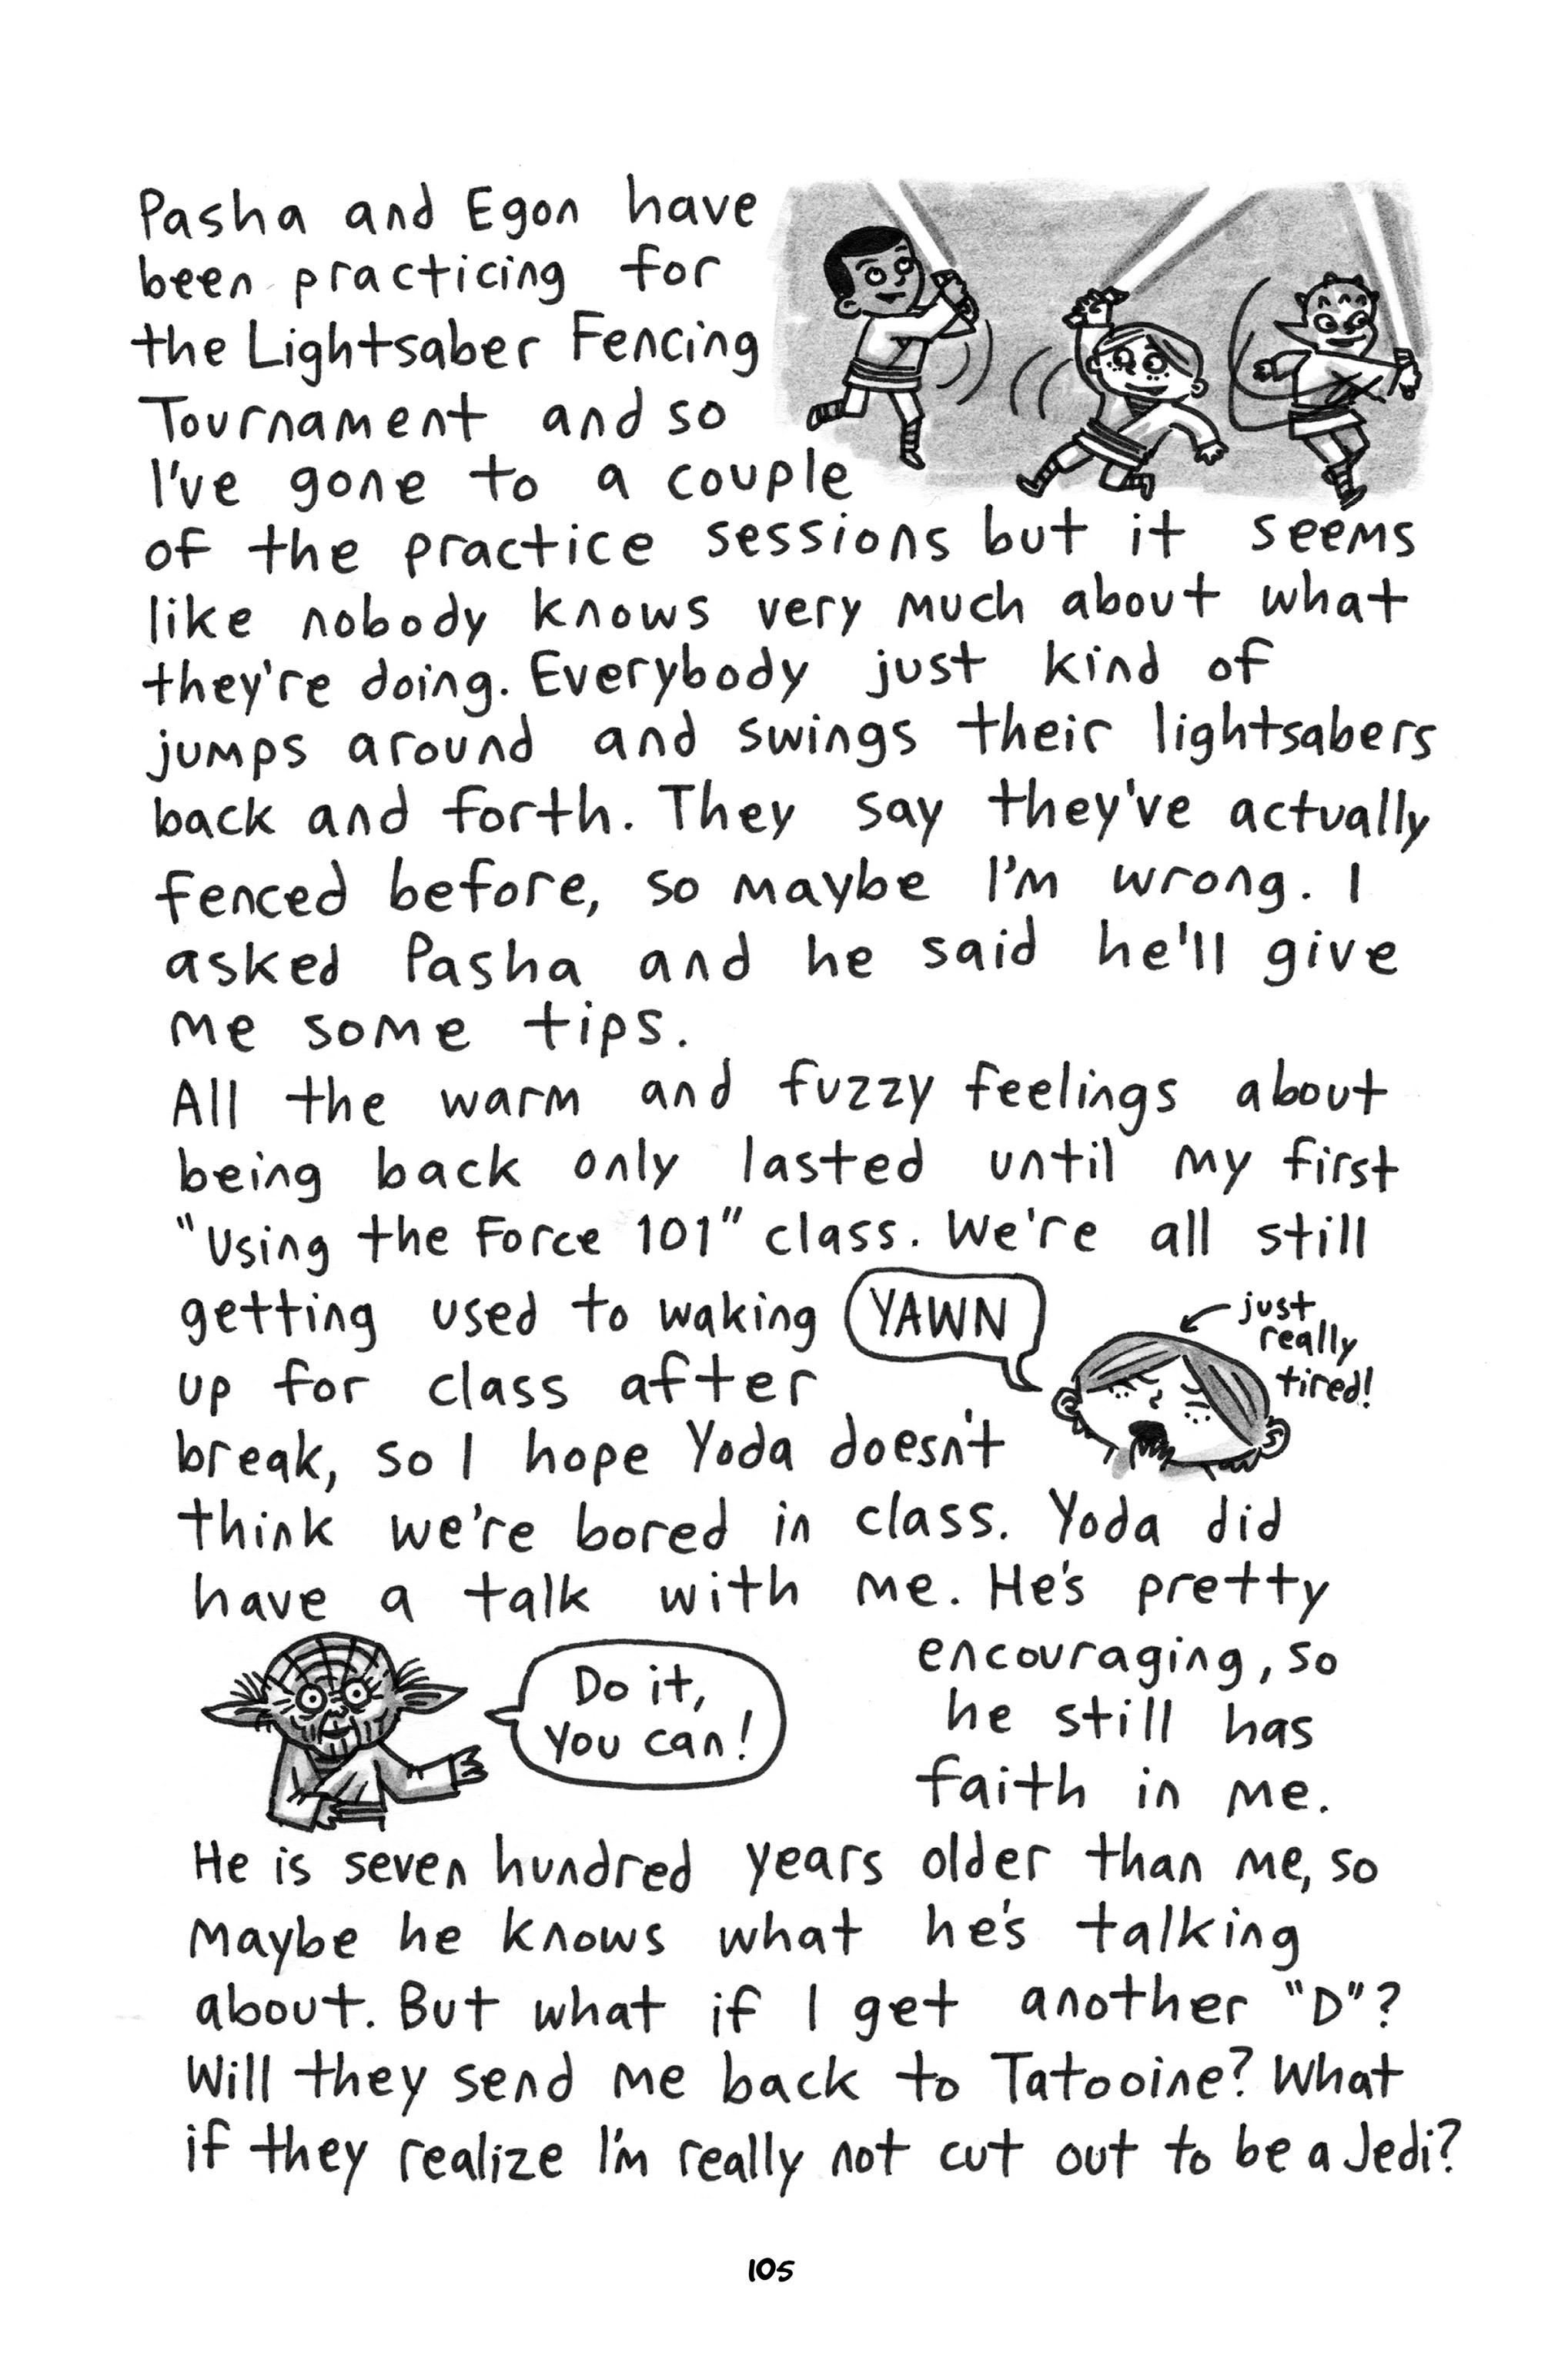 Pasha and Egon have
been practicing for
the Lightsaber Fencing
Tournament and so
I've gone to a couple
of the practice sessions but it seems
like nobody knows very much about what
they're doing. Everybody just kind of
jumps around and swings their lightsabers
back and forth. They say they've actually
fenced before, so maybe I'm wrong. I
asked Pasha and he said he'll give
me some tips.
All the warm and fuzzy feelings about
being back only lasted until my first
"Using the Force 101" class. We're all still
getting used to waking
up for class after
break, so I hope Yoda doesn't
think we're bored in class. Yoda did
have a talk with me. He's pretty
encouraging, so
he still has
faith in me.
He is seven hundred years older than me, so
maybe he knows what he's talking
about. But what if I get another "D"?
Will they send me back to Tatooine? What
if they realize I'm really not cut out to be a Jedi?
YAWN
just
really
tired!
Do it,
you can!
105